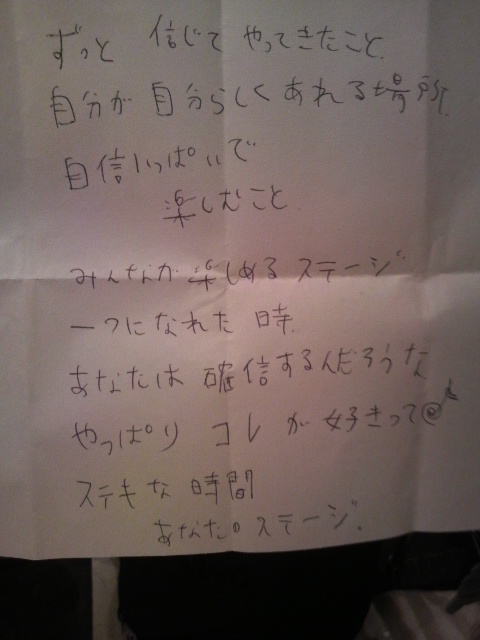 ずっと 信じて やってきたこと
自分が 自分らしく あれる場所
自信いっぱいで
楽しむこと
みんなが 楽しめる ステージ
一つになれた 時
あなたは 確信するんだろうな
やっぱり コレ が 好きって♪
ステキな 時間
あなたの ステージ.